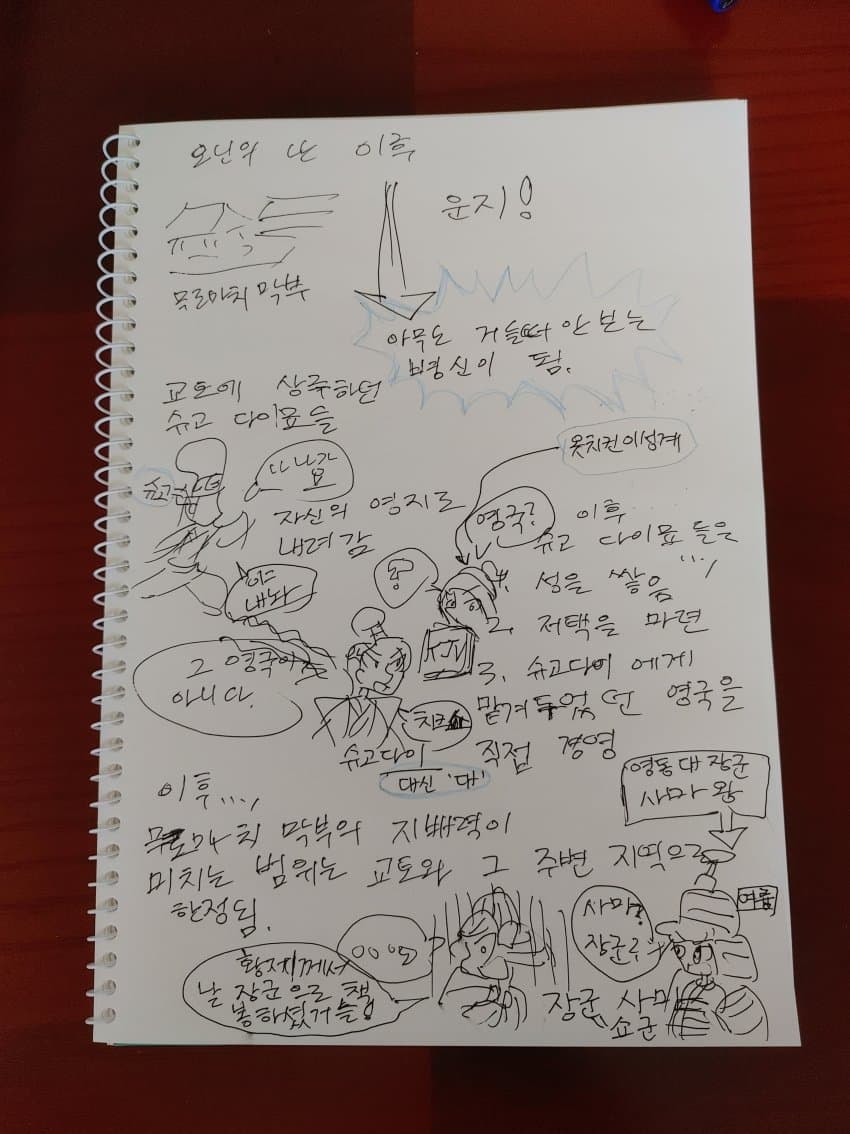 오닌의 난 이후
운지!
무로마치 막부
아무도 거들떠 안 보는
병신이 됨.
교토에 상주하던
슈고 다이묘들
슈고
떠나감
자신의 영지로
내려감
야 내놔
그 영국이
아니다.
옷치킨이성계
영국?
이후
슈고 다이묘들은
...,
1. 성을 쌓음
2. 저택을 마련
3. 슈고다이에게
맡겨두었던 영국을
직접 경영
치킨
슈고다이
대신 '대'
이후...,
무로마치 막부의 지배력이
미치는 범위는 교토와 그 주변 지역으로
한정됨.
영동대장군
사마왕
여름
사마?
장군?
황제께서
날 장군으로 책
봉하셨거늘!
장군 사마
쇼군